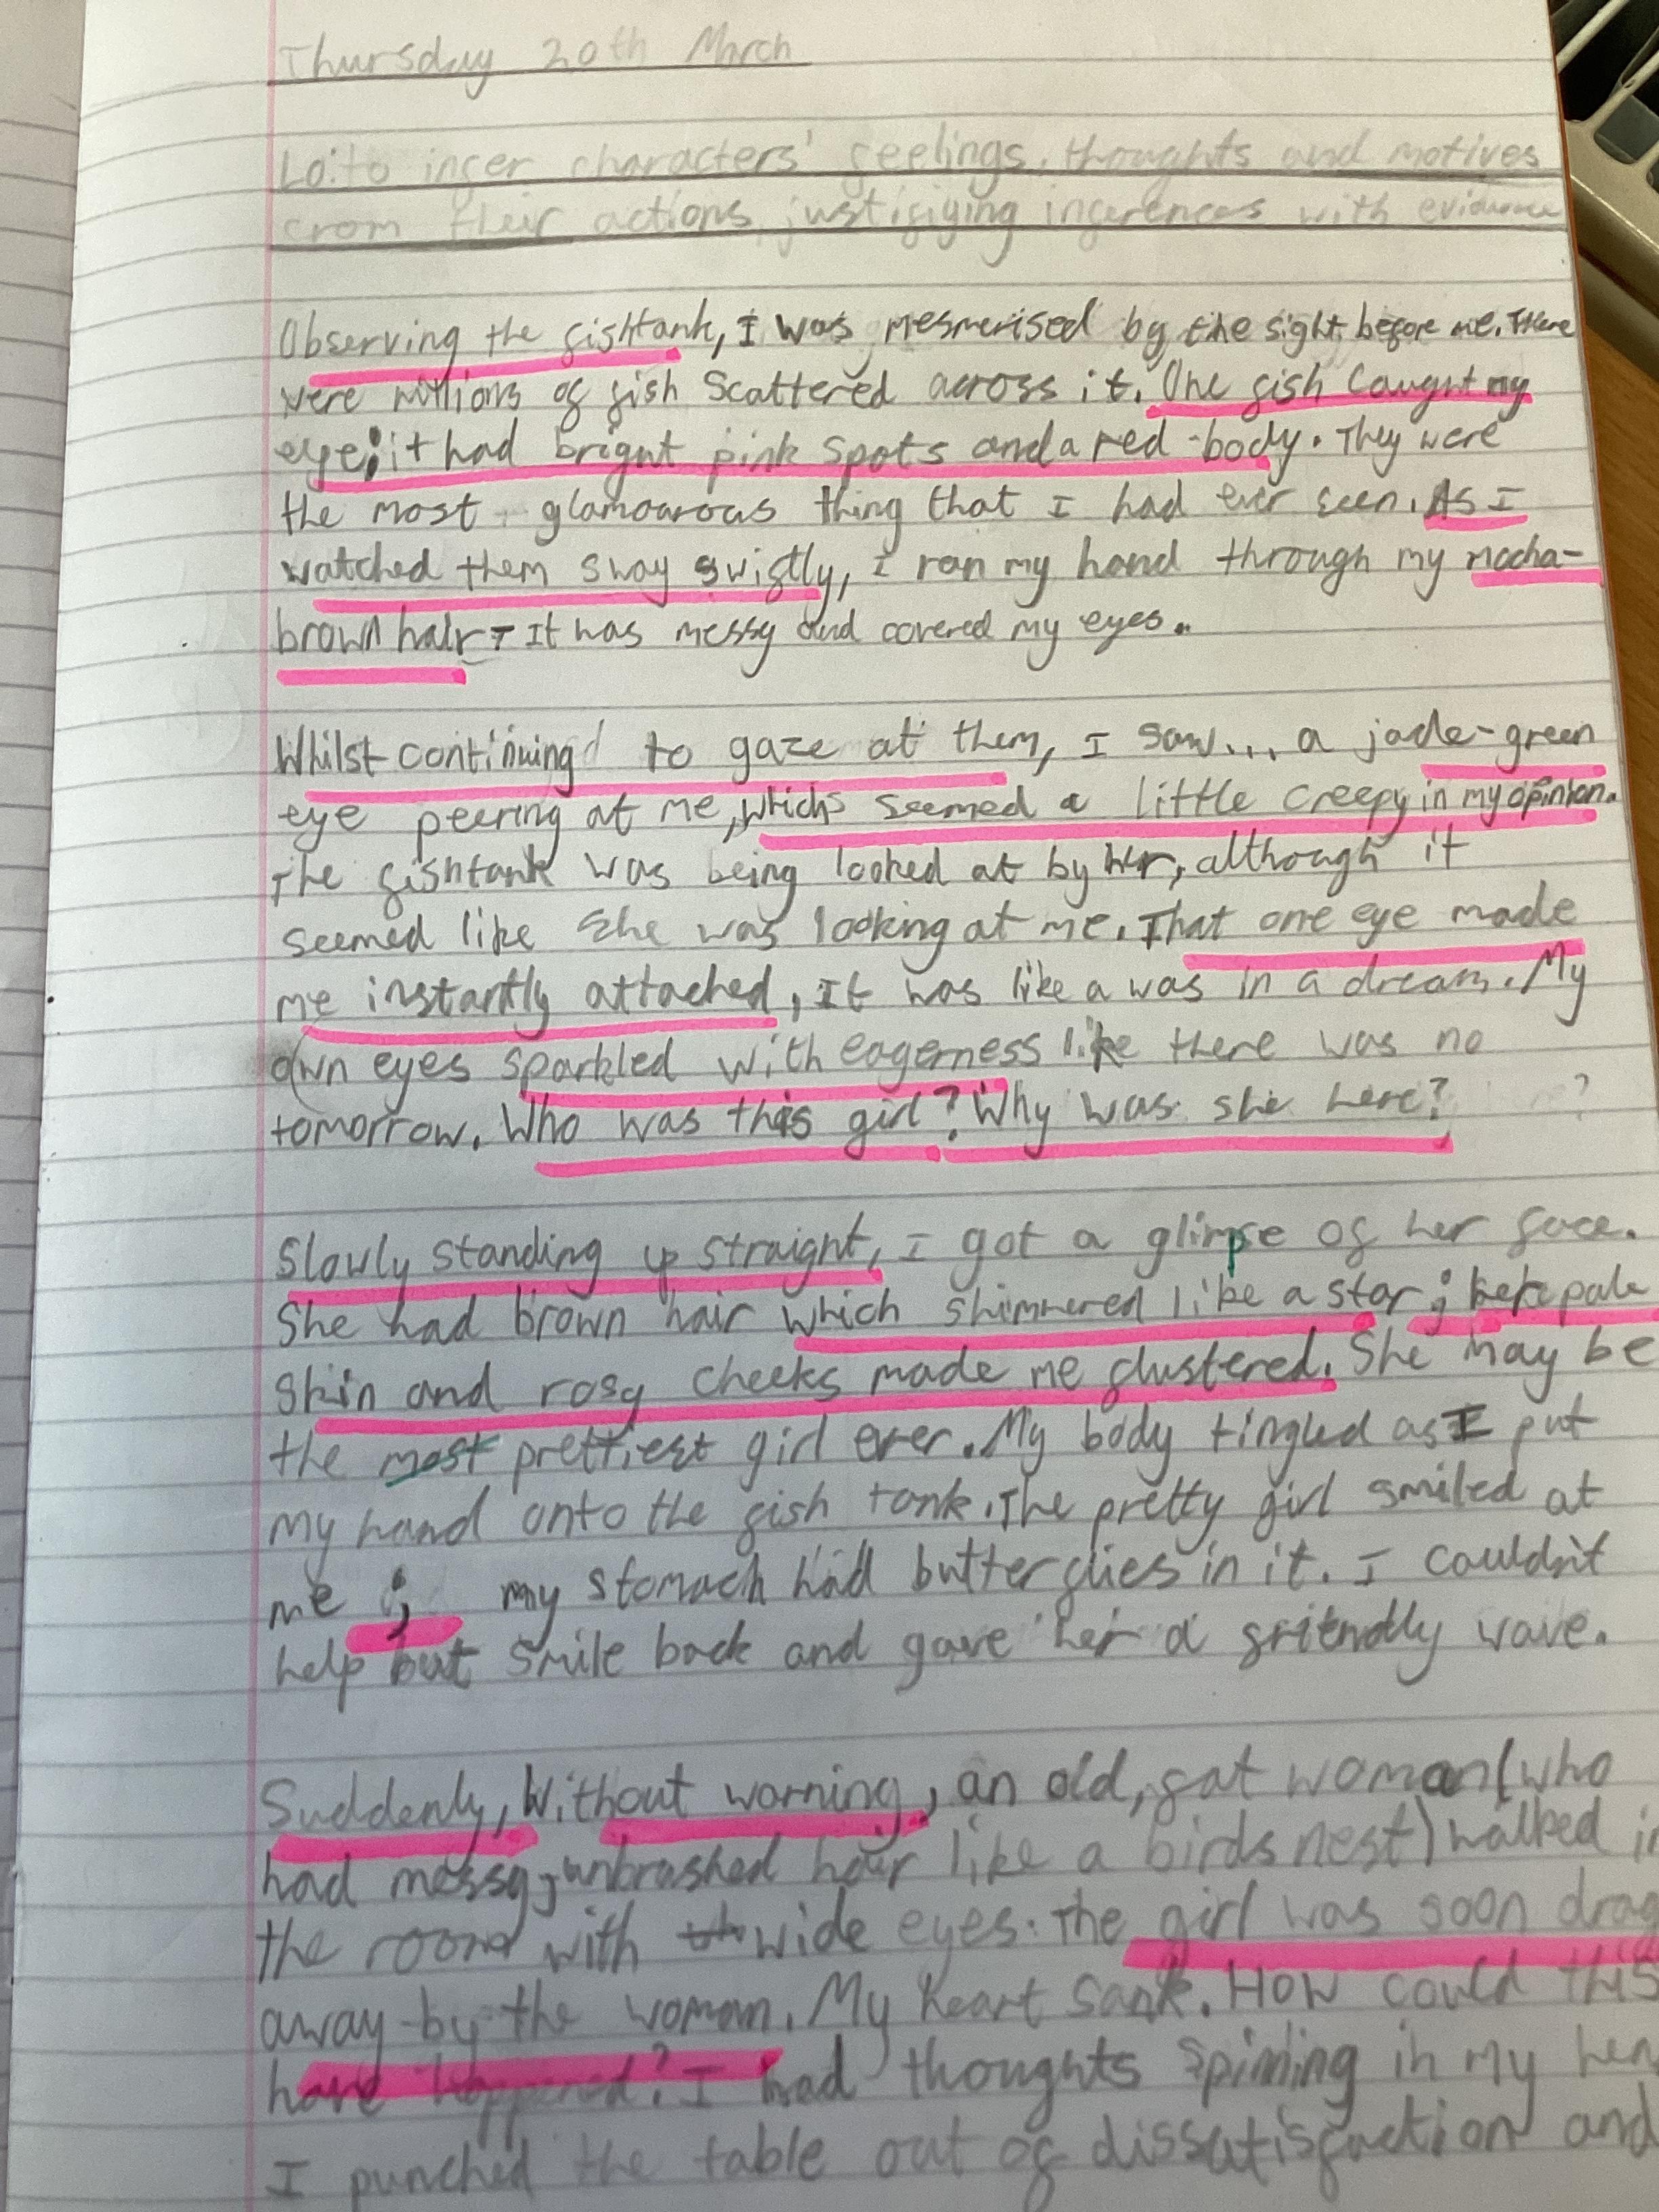 Thursday 20th March
Lo: to infer characters' feelings, thoughts and motives
from their actions, justifying inferences with evidence
Observing the fishtank, I was mesmerised by the sight before me. There
were millions of fish scattered across it. One fish caught my
eye; it had bright pink spots and a red-body. They were
the most glamourous thing that I had ever seen. As I
watched them sway swiftly, I ran my hand through my mocha-
brown hair - It was messy and covered my eyes..
Whilst continuing to gaze at them, I saw... a jade-green
eye peering at me, which seemed a little creepy in my opinion.
The fishtank was being looked at by her, although it
seemed like she was looking at me. That one eye made
me instantly attached, It was like a was in a dream. My
own eyes sparkled with eagerness like there was no
tomorrow. Who was this girl? Why was she here?
Slowly standing up straight, I got a glimpse of her face.
She had brown hair which shimmered like a star; her pale
skin and rosy cheeks made me flustered. She may be
the most prettiest girl ever. My body tingled as I put
my hand onto the fish tank. The pretty girl smiled at
me ; my stomach had butterflies in it. I couldn't
help but smile back and gave her a friendly wave.
Suddenly, Without warning, an old, fat woman (who
had messy, unbrushed hair like a birds nest) walked in
the room with wide eyes. The girl was soon drag
away by the woman. My heart sank. How could this
have happened? I had thoughts spinning in my
I punched the table out of dissatisfaction and